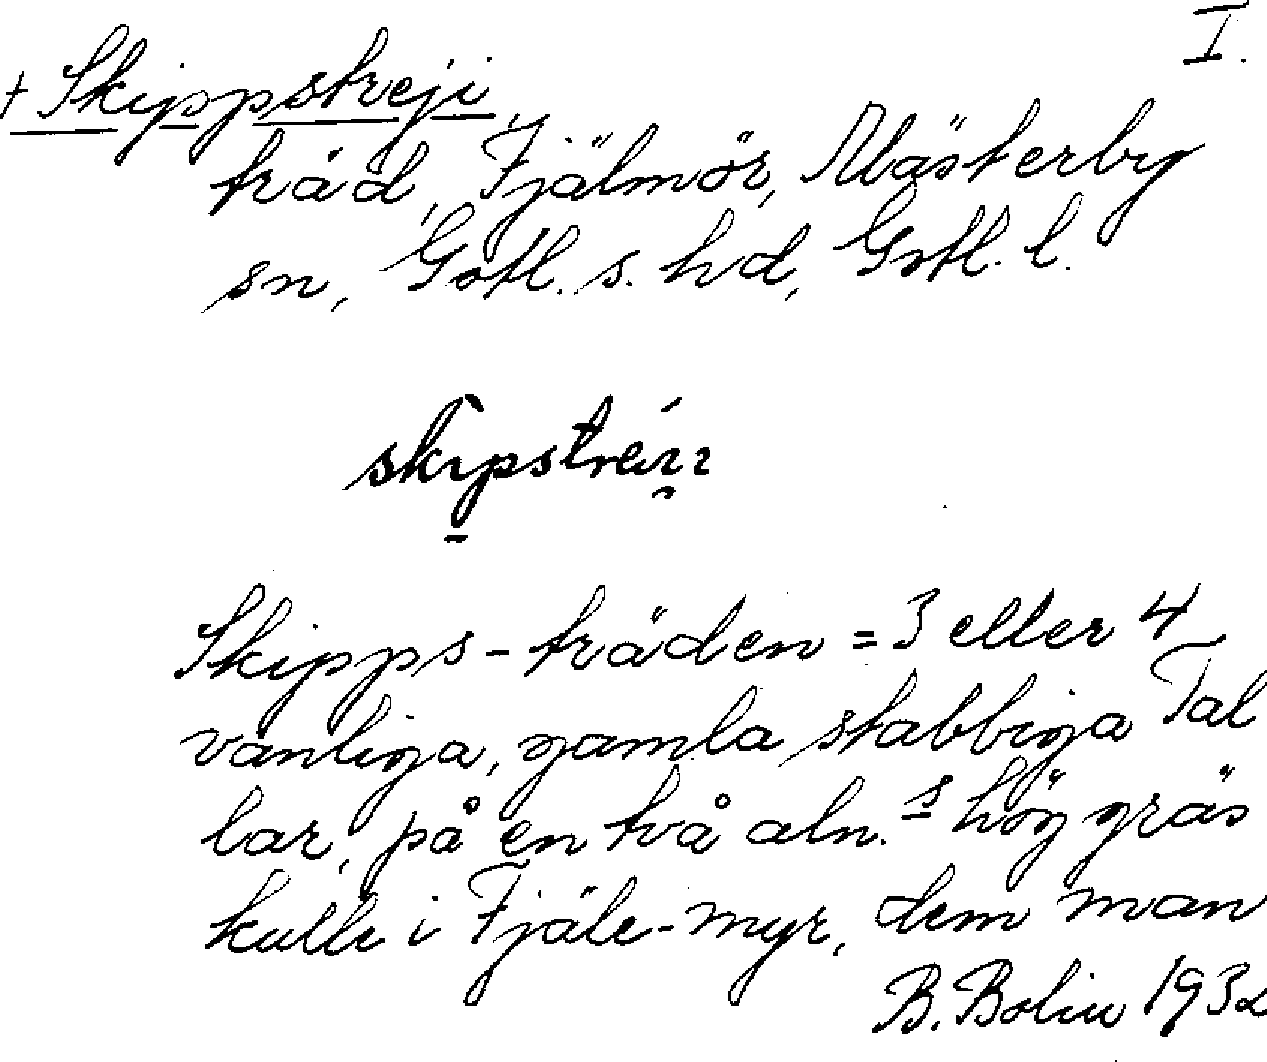 I.
+ Skippstreji,
träd, Fjälmör, Mästerby
sn, Gotl. s. hd, Gotl. l.
Skipps-träden = 3 eller 4
vanliga, gamla stabbiga Tal
lar, på en två aln.s hög gräs
kulle i Fjäle-myr, dem man
B. Bolin 1932